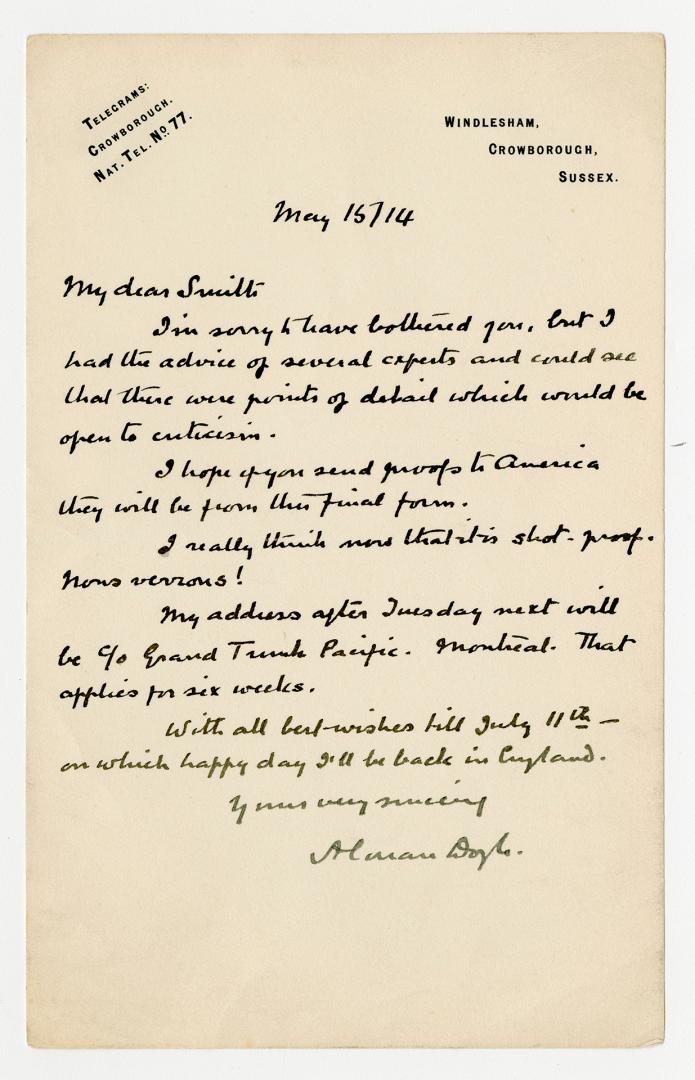 TELEGRAMS:
CROWBOROUGH.
NAT. TEL. Nº 77.
WINDLESHAM,
CROWBOROUGH,
SUSSEX.
May 15/14
My dear Smith
I'm sorry to have bothered you, but I
had the advice of several experts and could see
that there were points of detail which would be
open to criticism.
I hope if you send proofs to America
they will be from this final form.
I really think now that it is shot-proof.
Nous verrons!
My address after Tuesday next will
be c/o Grand Trunk Pacific. Montreal. That
applies for six weeks.
With all best wishes till July 11th —
on which happy day I'll be back in England.
Yours very sincerely
A Conan Doyle.